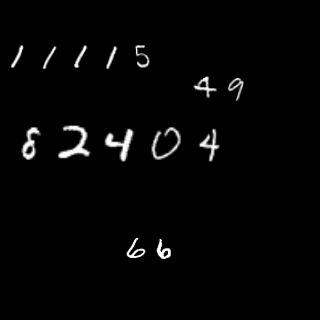 11115
49
82404
66